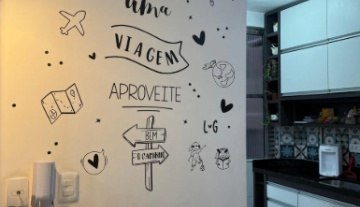 uma
VIAGEM
APROVEITE
BEM
O CAMINHO
L♥G